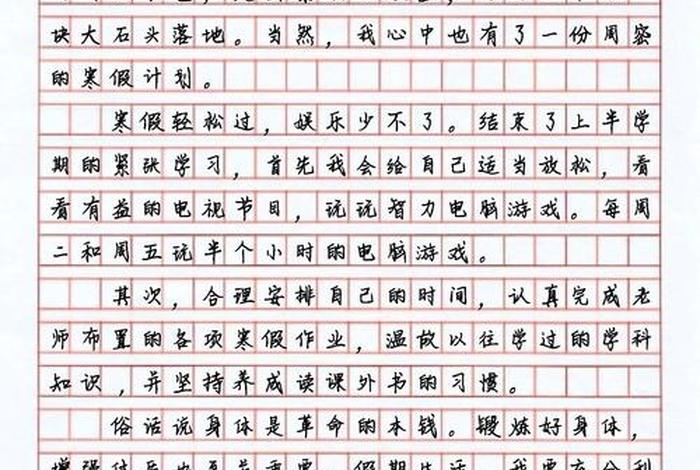 块大石头落地。当然，我心中也有了一份周密
的寒假计划。
寒假轻松过，娱乐少不了。结束了上半学
期的紧张学习，首先我会给自己适当放松，看
看有益的电视节目，玩玩智力电脑游戏。每周
二和周五玩半个小时的电脑游戏。
其次，合理安排自己的时间，认真完成老
师布置的各项寒假作业，温故以往学过的学科
知识，并坚持养成读课外书的习惯。
俗话说身体是革命的本钱。锻炼好身体，